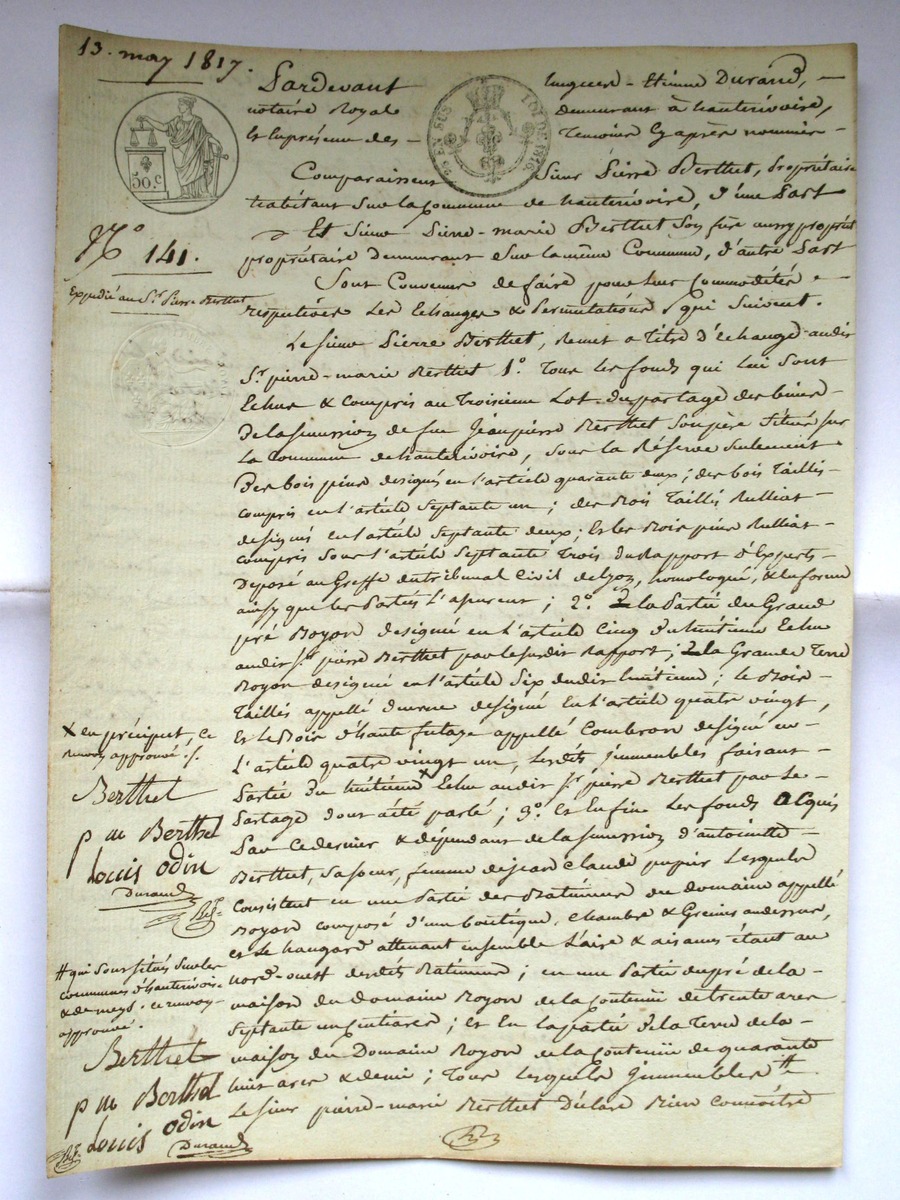 13. may 1817.
Pardevant Etienne Durand,
notaire Royale demeurant à hauterivoire,
Et En présence des Temoins Cy après nommés
50.c
25 EN SUS
LOI DE 1816
Comparaissent Sieur Pierre Berthet, propriétaire
habitant Sur la Commune de hauterivoire, d'une Part
Et Sieur Pierre-marie Berthet Son frère aussy propriét
propriétaire demeurant Sur la même Commune, d'autre Part
N.o 141.
Expédié au Sr. Pierre Berthet
Sont Convenus de faire pour leurs Commodités
respectives les Echanges & permutations qui Suivent.
Le Sieur Pierre Berthet, Remet a Titre d'échange audit
Sr. pierre-marie Berthet 1.o Tous les fonds qui Lui Sont
Echus & Compris au Troisième Lot du partage des biens
De la Succession de feu Jean pierre Berthet Son père Situés Sur
La Commune de hauterivoire, Sous la Réserve Seulement
Des bois pins designés en l'article quarante deux; des bois Taillis
compris en l'article Septante un; des Bois Taillis Rulliat
designés en l'article Septante deux; Et les Bois pins Rulliat
compris Sous l'article Septante Trois du Rapport d'Experts
Deposé au Greffe du tribunal Civil de Lyon, homologué, & en forme
ainsy que les Parties l'assurent; 2.o La Partie du Grand
pré Royon designé en l'article Cinq du huitième Echu
audit Sr. pierre Berthet par le Susdit Rapport; La Grande Terre
Royon designé en l'article Six dudit huitième; le Bois
Taillis appellé designé En l'article quatre vingt,
Et le Bois d'haute futaye appellé Combron designé en
L'article quatre vingt un, Lesdits immeubles faisant
Partie du huitième x Echu audit Sr. pierre Berthet par le
Partage dont a été parlé; 3.o et Enfin Les fonds acquis
Par Ce dernier & dépendant de la Succession d'antoinette
Berthet, Sa Soeur, femme de jean Claude pupier Lesquels
Consistent en une Partie des Batimens du domaine appellé
Royon composé d'un boutique, Chambre & Greniers audessus,
et le hangard attenant ensemble L'aire & aisances étant au
nord-ouest desdits Batimens; en une Partie du pré de la
maison du domaine Royon de la Contenue de trente ares
Septante un Centiares; et En la partie de la Terre de la
maison du Domaine Royon de la Contenue de quarante
huit ares & demi; Tous Lesquels Immeubles #
Le Sieur pierre-marie Berthet Déclare Bien Connoître
x en préciput, Ce
renvoy approuvé ./.
Berthet
p m Berthet
Louis odin
Durand
# qui Sont Situés Sur les
communes d'hauterivoire
& de meys. ce renvoy
approuvé.
Berthet
p m Berthet
Louis odin
Durand